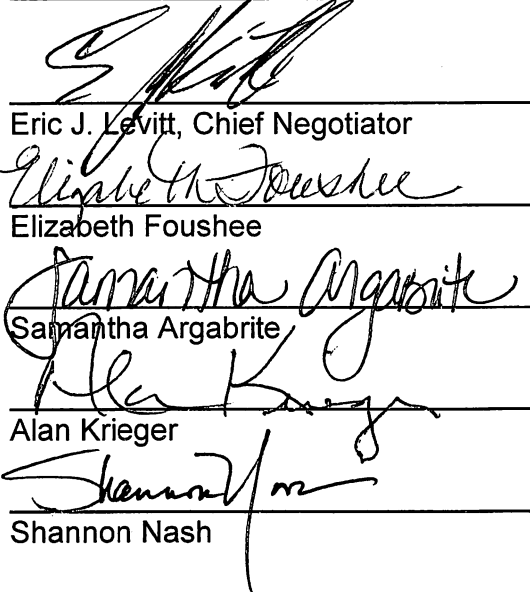 Eric J. Levitt, Chief Negotiator
Elizabeth Foushee
Elizabeth Foushee
Samantha Argabrite
Samantha Argabrite
Alan Krieger
Alan Krieger
Shannon
Shannon Nash